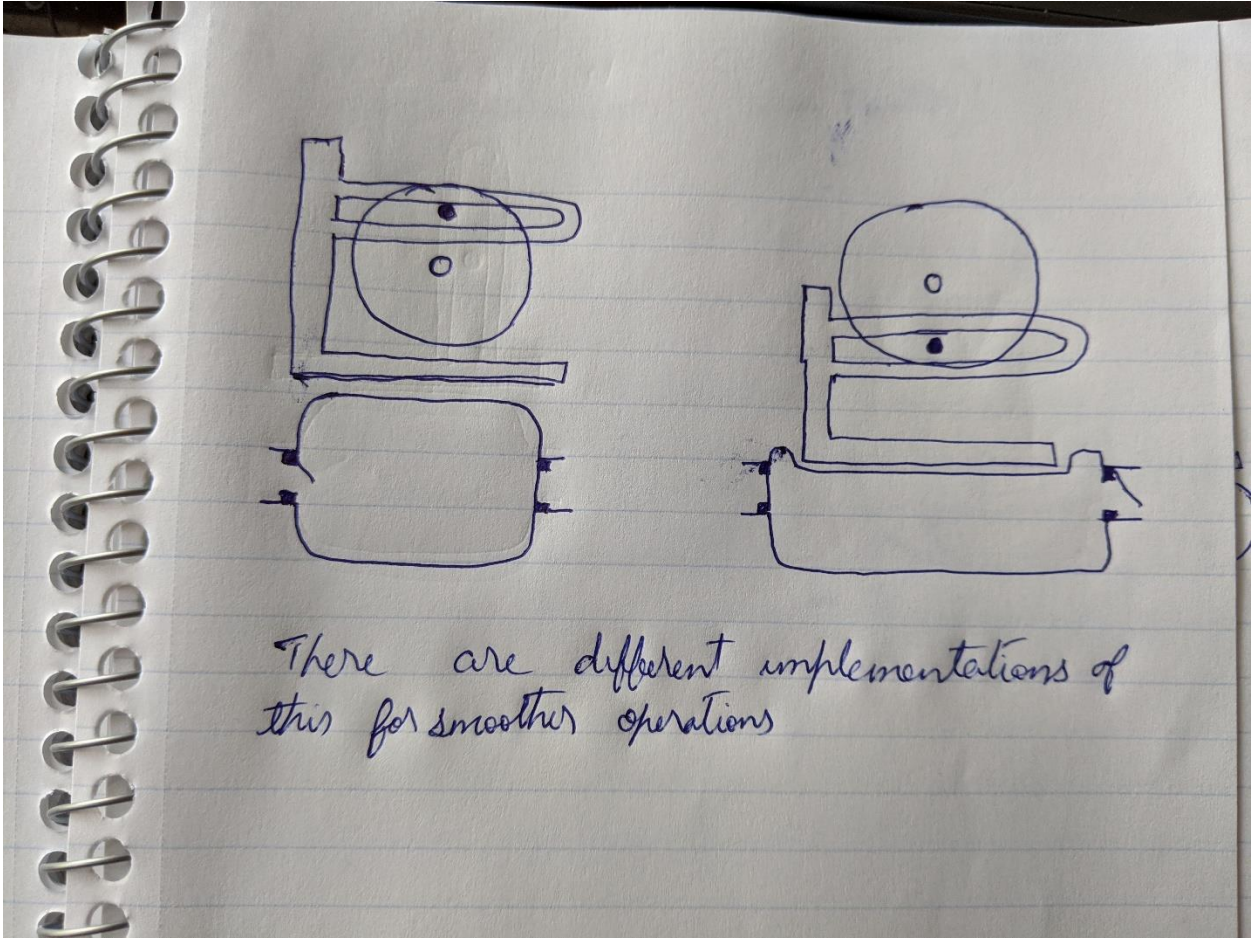 There are different implementations of
this for smoother operations